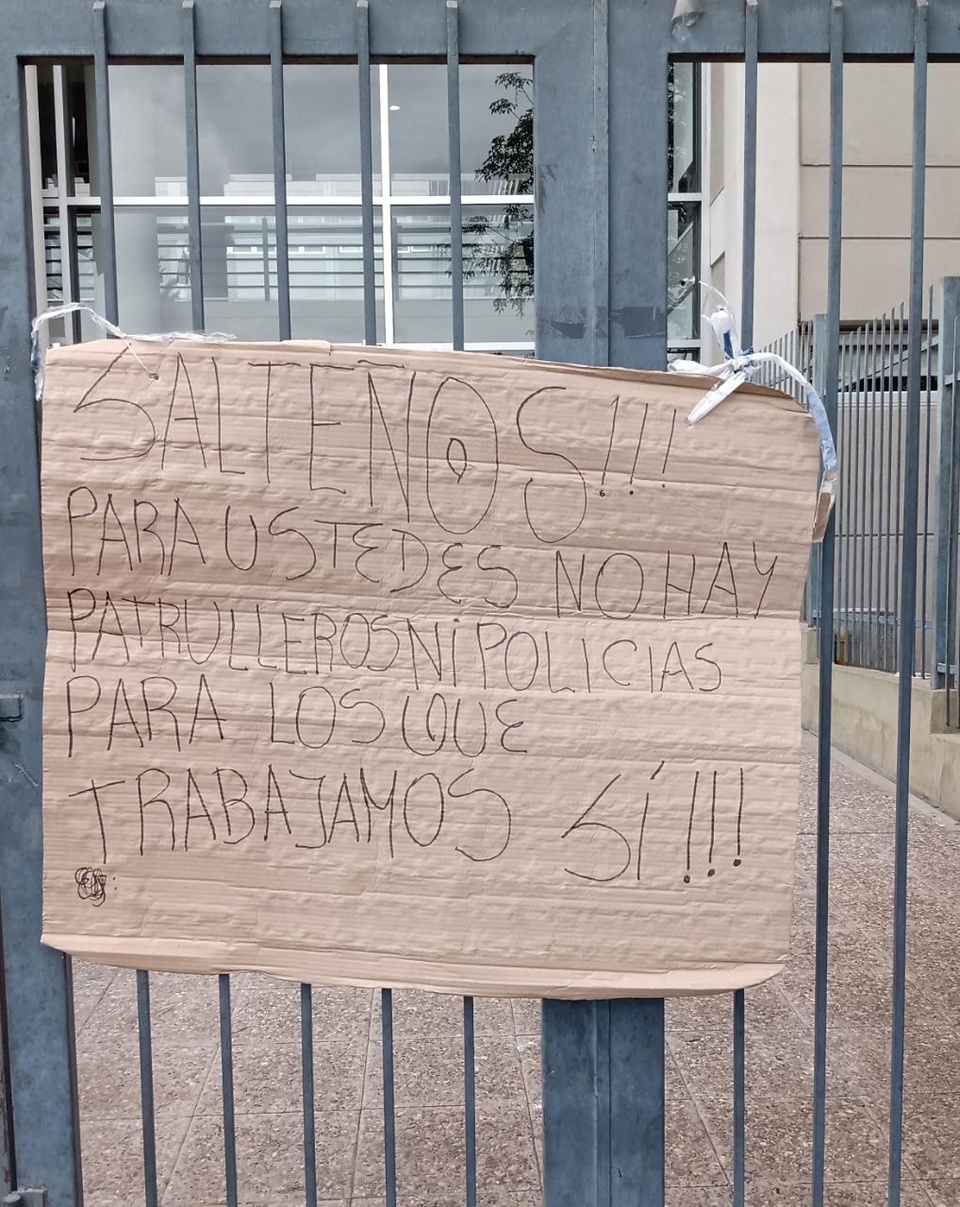 SALTEÑOS!!!
PARA USTEDES NO HAY
PATRULLEROS NI POLICIAS
PARA LOS QUE
TRABAJAMOS SÍ!!!